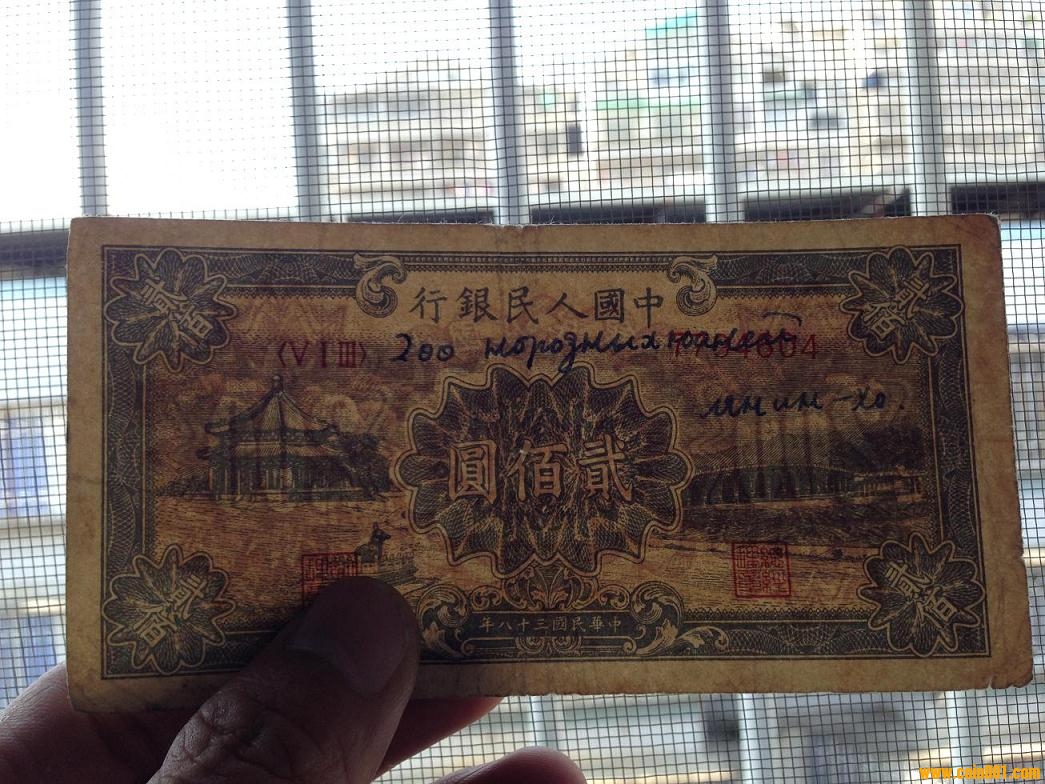 中國人民銀行
〈VIII〉
200 морозных юаней
貳佰圓
貳佰
貳佰
貳佰
貳佰
中華民國三十八年
www.coin001.com